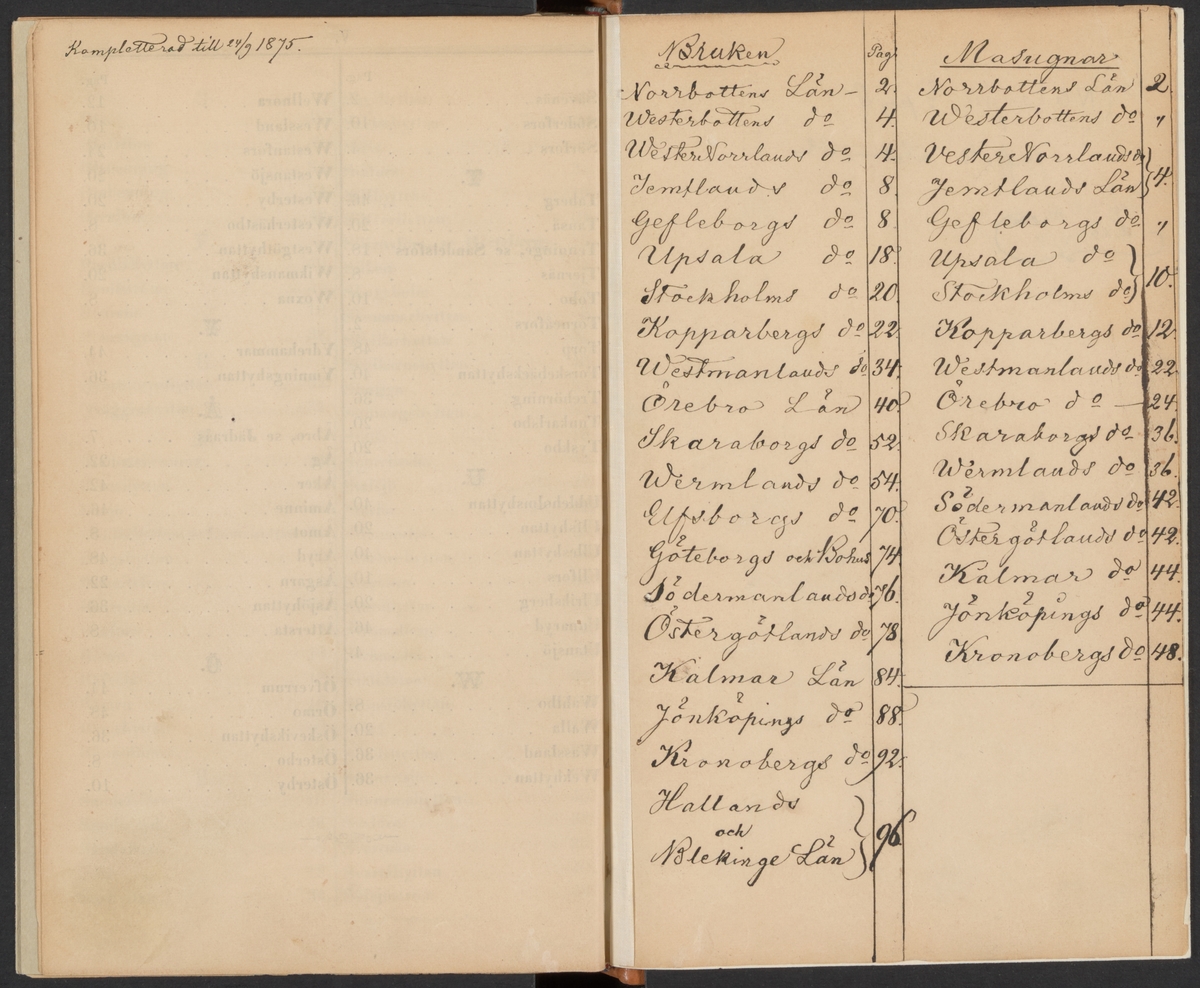 Kompletterad till 24/9 1875.
Bruken Pag
Norrbottens Län – 2
Westerbottens do 4.
WesterNorrlands do 4.
Jemtlands do 8.
Gefleborgs do 8.
Upsala do 18.
Stockholms do 20.
Kopparbergs do 22.
Westmanlands do 34.
Örebro Län 40.
Skaraborgs do 52.
Wermlands do 54.
Elfsborgs do 70.
Göteborgs och Bohus 74.
Södermanlands do 76.
Östergötlands do 78
Kalmar Län 84.
Jönköpings do 88.
Kronobergs do 92.
Hallands
och
Blekinge Län 96
Masugnar
Norrbottens Län 2
Westerbottens do "
VesterNorrlands do
Jemtlands Län 4.
Gefleborgs do "
Upsala do
Stockholms do 10.
Kopparbergs do 12
Westmanlands do 22
Örebro do — 24
Skaraborgs do 36.
Wermlands do 36.
Södermanlands do 42.
Östergötlands do 42.
Kalmar do 44.
Jönköpings do 44.
Kronobergs do 48.